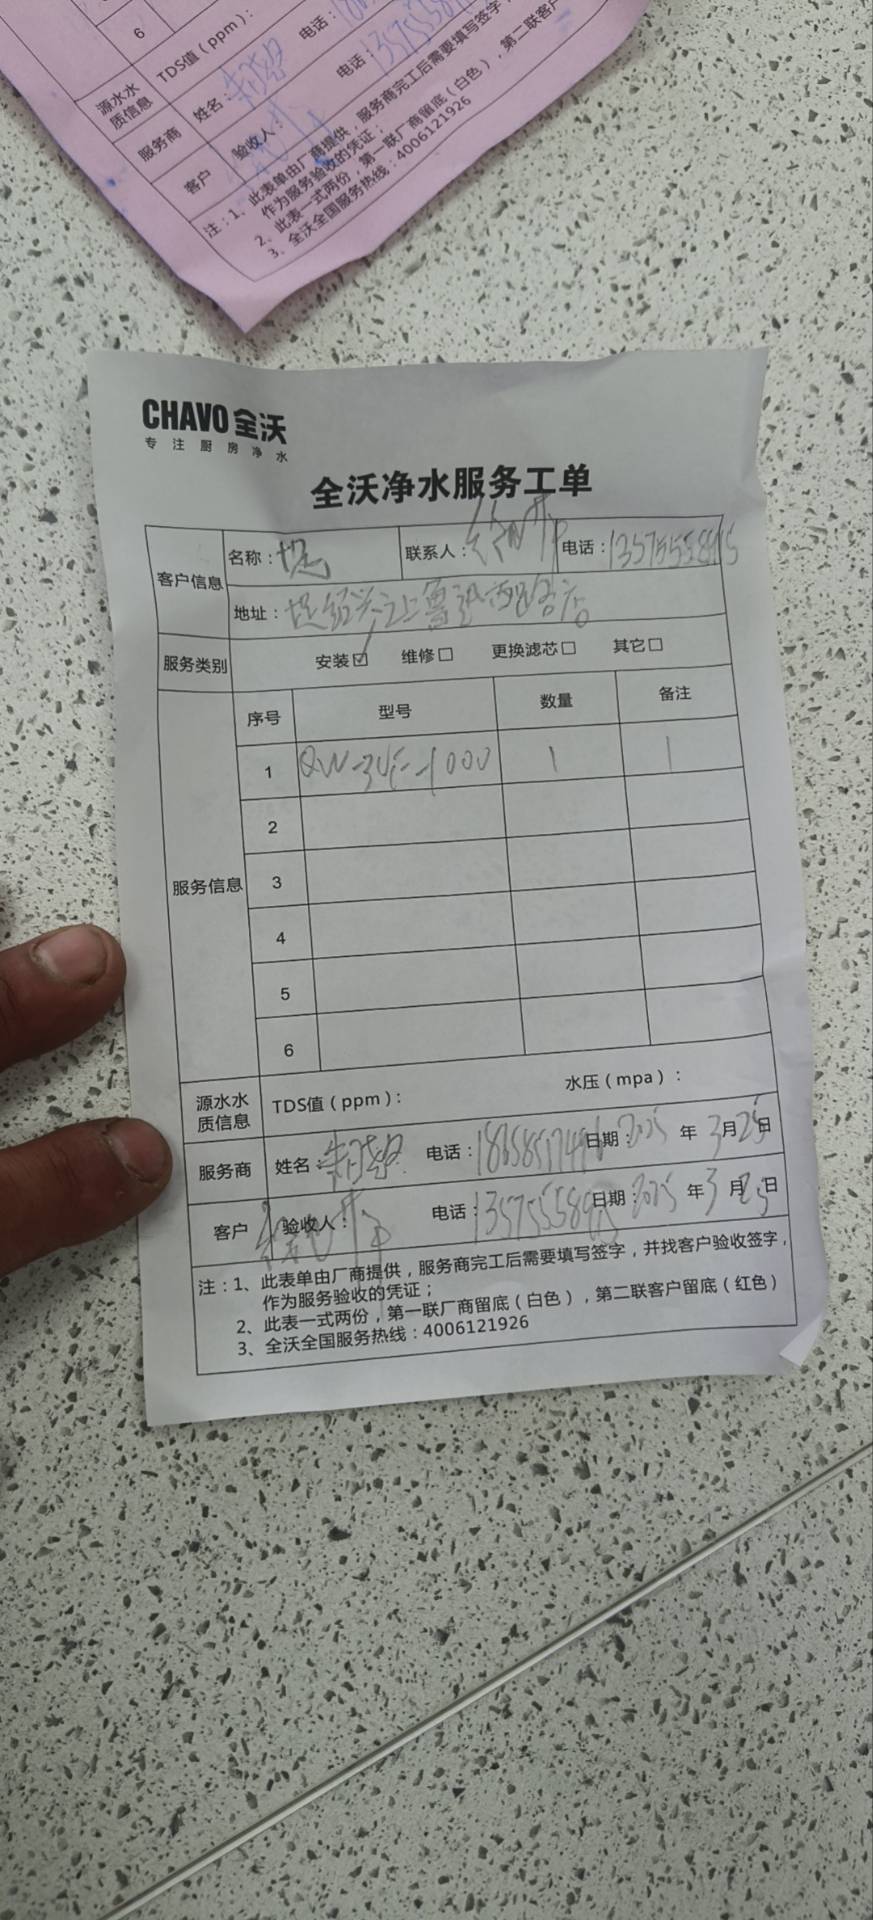 6
TDS值（ppm）：
电话：
源水水
质信息
服务商
姓名：
电话：
客户
验收人：
注：1、此表单由厂商提供，服务商完工后需要填写签字，
作为服务验收的凭证；
2、此表一式两份，第一联厂商留底（白色），第二联客户
3、全沃全国服务热线：4006121926
CHAVO 全沃
专注厨房净水
全沃净水服务工单
客户信息
名称：
联系人：
电话：
地址：
服务类别
安装☑ 维修□ 更换滤芯□ 其它□
服务信息
序号 型号 数量 备注
1 1 1
2
3
4
5
6
源水水
质信息
TDS值（ppm）： 水压（mpa）：
服务商 姓名： 电话： 日期：2025 年 3月25日
客户 验收人： 电话： 日期：2025 年 3 月 25 日
注：1、此表单由厂商提供，服务商完工后需要填写签字，并找客户验收签字，
作为服务验收的凭证；
2、此表一式两份，第一联厂商留底（白色），第二联客户留底（红色）
3、全沃全国服务热线：4006121926